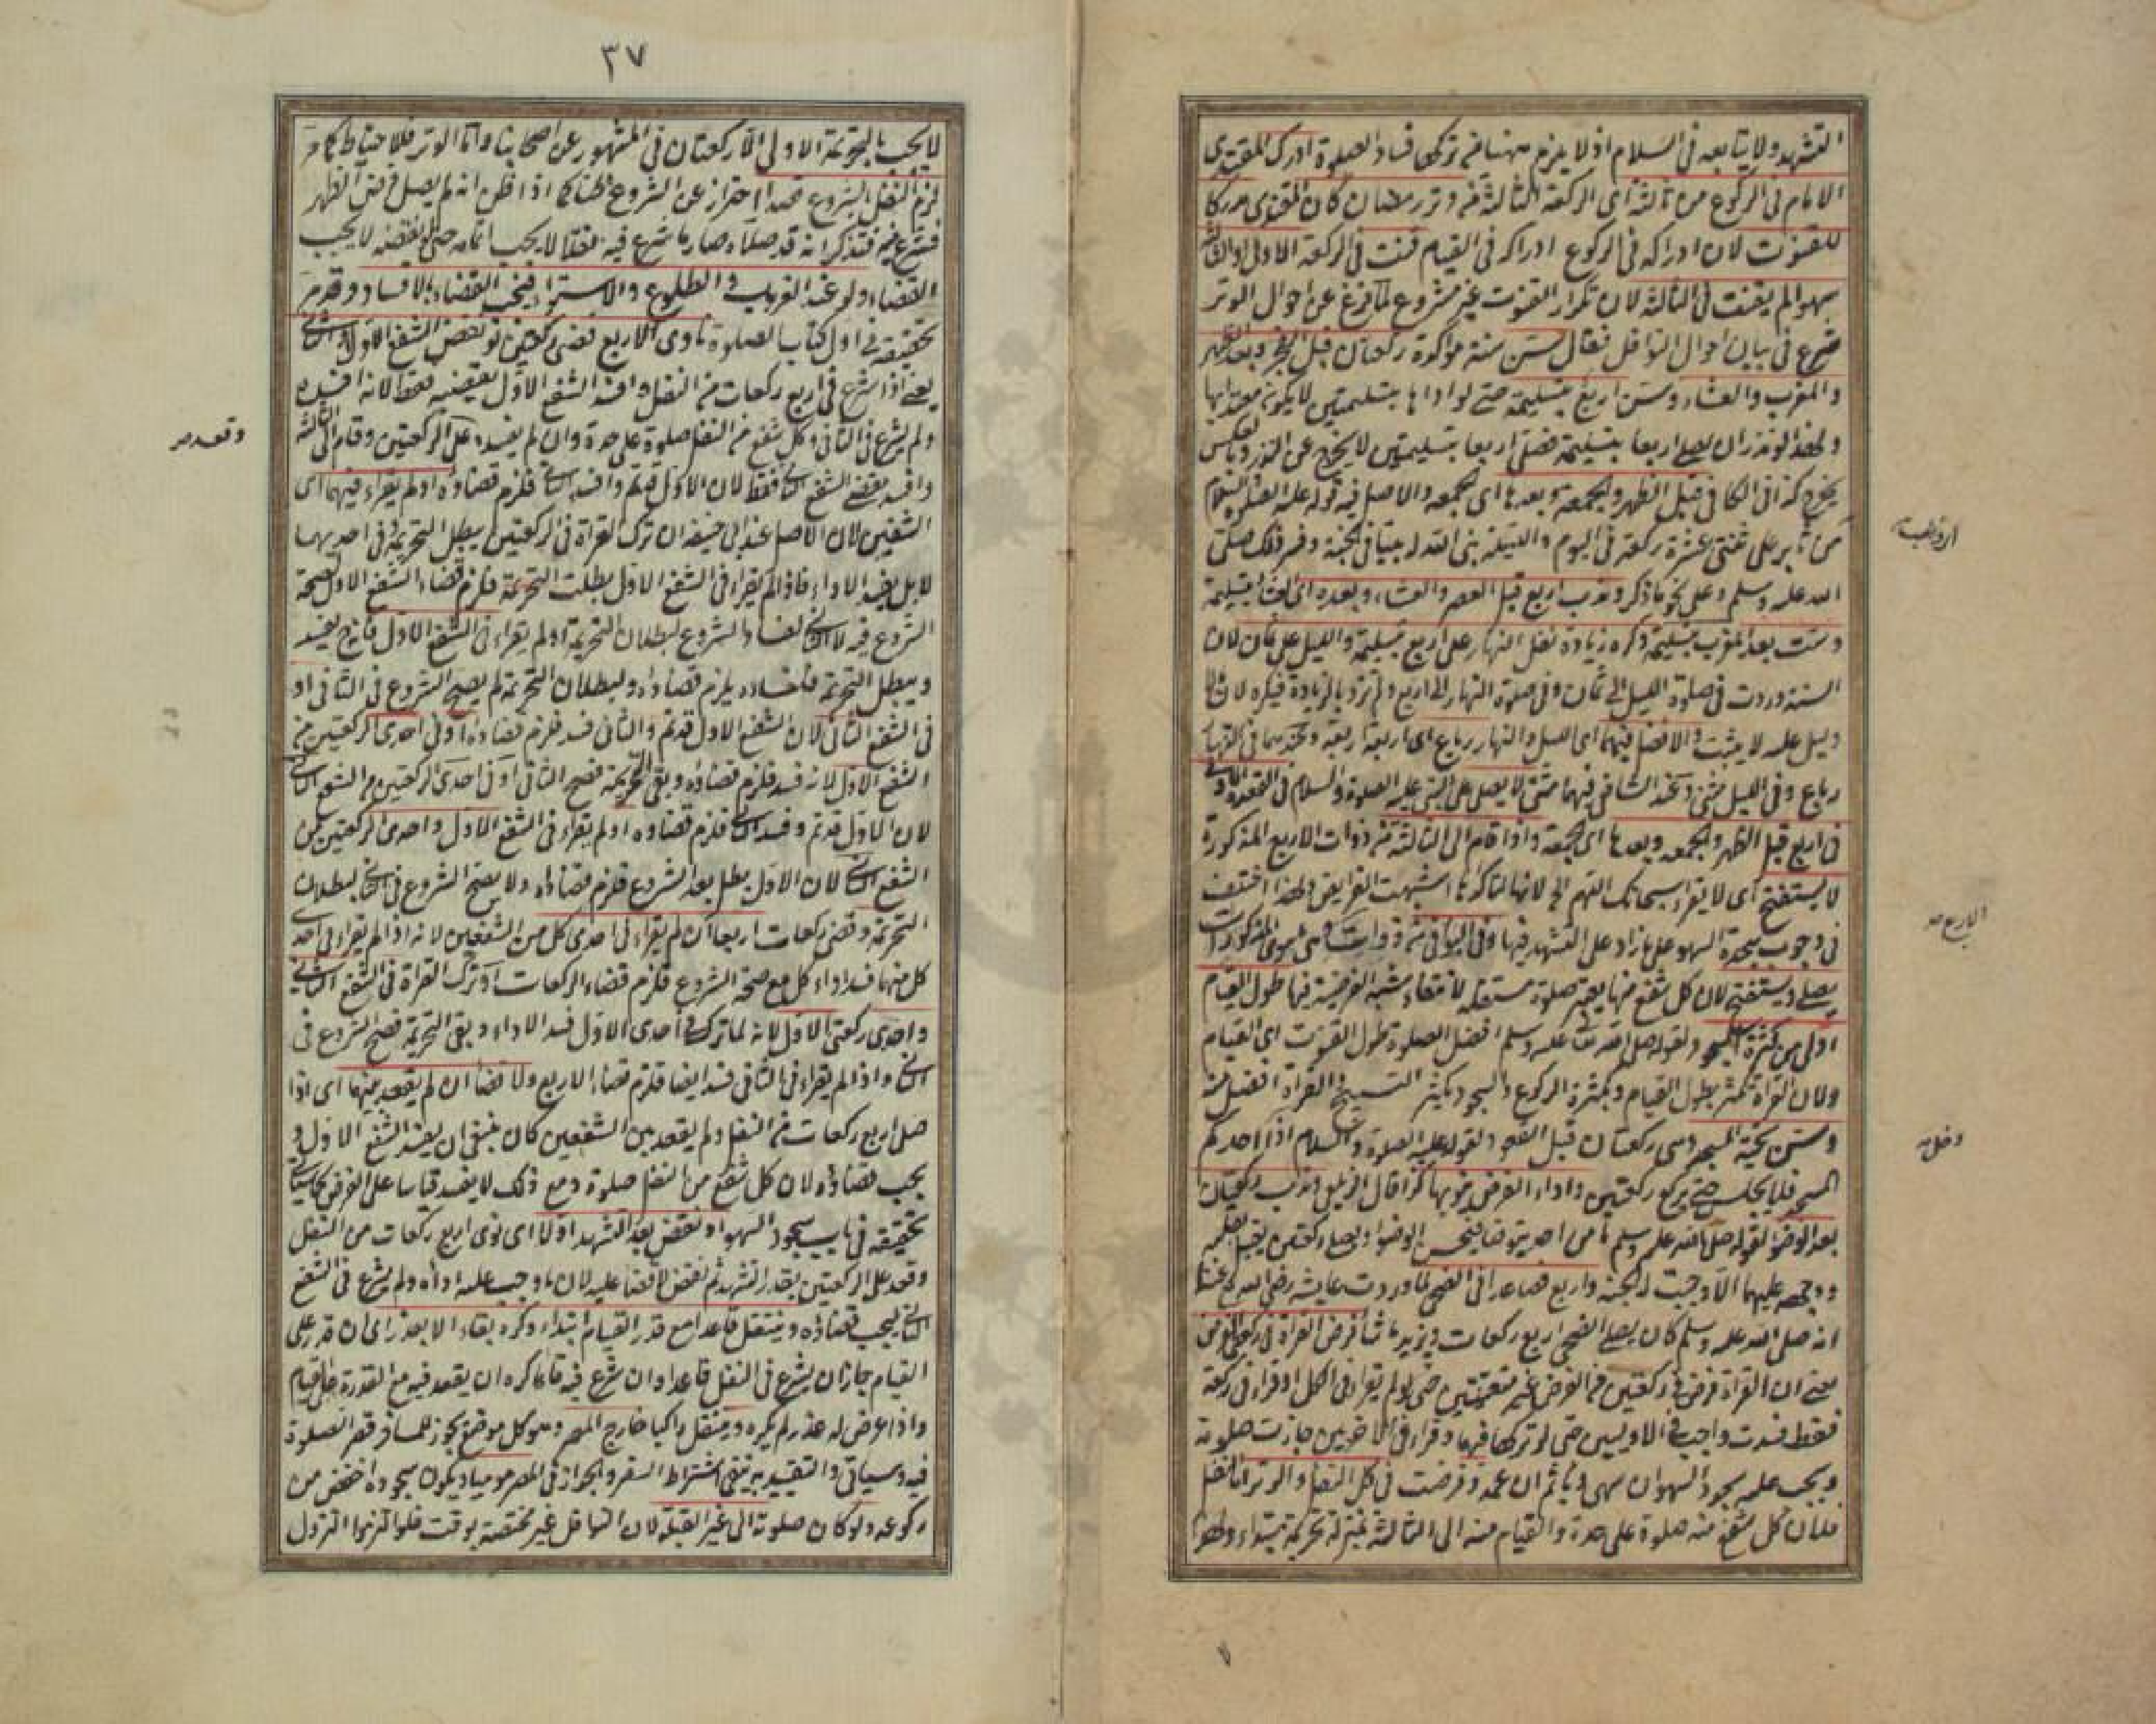 التشهد ولا يتابعه فى السلام اذ لا يلزم ههنا من تركها فساد الصلوة ادرك المقتدى
الامام فى الركوع من ثالثة اى الركعة الثالثة من وتر رمضان كان المقتدى مدركا
للقنوت لان ادراكه فى الركوع ادراكه فى القيام قنت فى الركعة الاولى او الثانية
سهوا لم يقنت فى الثالثة لان تكرار القنوت غير مشروع لما فرغ عن احوال الوتر
شرع فى بيان احوال النوافل فقال سن سنة مؤكدة ركعتان قبل الفجر وبعد الظهر
والمغرب والعشاء وسن اربع بتسليمة حتى لو اداها بتسليمتين لا يكون معتدا بها
ولهذا لو نذر ان يصلى اربعا بتسليمة فصلى اربعا بتسليمتين لا يخرج عن النذر وبالعكس
يخرج كذا فى الكافى قبل الظهر والجمعة وبعدها اى الجمعة والاصل فيه قوله عليه الصلوة والسلام
من ثابر على ثنتى عشرة ركعة فى اليوم والليلة بنى الله له بيتا فى الجنة وفسر ذلك صلى
الله عليه وسلم على نحو ما ذكر وندب اربع قبل العصر والعشاء وبعده اى العشاء بتسليمة
وست بعد المغرب بتسليمة وكره زيادة نفل النهار على اربع بتسليمة والليل على ثمان لان
السنة وردت فى صلوة الليل الى ثمان وفى صلوة النهار الى اربع ولم ترد بالزيادة فيكره لان ما لا
دليل عليه لا يثبت والافضل فيهما اى الليل والنهار رباع اى اربعة اربعة وعندهما فى النهار
رباع وفى الليل مثنى وعند الشافعى فيهما مثنى لا يصلى على النبى عليه الصلوة والسلام فى القعدة الاولى
فى اربع قبل الظهر والجمعة وبعدها اى الجمعة واذا قام الى الثالثة من ذوات الاربع المذكورة
لا يستفتح اى لا يقراء سبحانك اللهم الخ لانها لتأكدها اشبهت الفرايض ولهذا اختلف
فى وجوب سجدة السهو على ما زاد على التشهد فيها وفى البواقى من ذوات الاربع سوى المذكورات
يصلى ويستفتح لان كل شفع منها يعتبر صلوة مستقلة لانتفاء شبه الفرضية فيها طول القيام
اولى من كثرة السجود لقوله صلى الله تعالى عليه وسلم افضل الصلوة طول القنوت اى القيام
ولان القراة تكثر بطول القيام وبكثرة الركوع والسجود يكثر التسبيح والقراة افضل منه
وسن تحية المسجد وهى ركعتان قبل القعود لقوله عليه الصلوة والسلام اذا احدكم
المسجد فلا يجلس حتى يركع ركعتين واداء الفرض ينوبها كذا قال الزيلعى وندب ركعتان
بعد الوضوء لقوله صلى الله عليه وسلم ما من احد يتوضأ فيحسن الوضوء ويصلى ركعتين يقبل بقلبه
ووجهه عليهما الا وجبت له الجنة واربع فصاعدا فى الضحى لما روت عايشة رضى الله تع عنها
انه صلى الله عليه وسلم كان يصلى الضحى اربع ركعات ويزيد ما شاء فرض القراة فى ركعتى الفرض
يعنى ان القراة فرض فى ركعتين من الفرض غير متعينتين حتى لو لم يقراء فى الكل او قراء فى ركعة
فقط فسدت واجب فى الاوليين حتى لو تركها فيهما وقراء فى الاخريين جازت صلوته
ويجب عليه سجود السهو ان سهى ويأثم ان عمد وفرضت فى كل النفل والوتر اما النفل
فلان كل شفع منه صلوة على حدة والقيام منه الى الثالثة بمنزلة تحريمة مبتداءة ولهذا
الرواتب
الاربع صح
دخل صح
٣٧
لا يجب بالتحريمة الاولى الا ركعتان فى المشهور عن اصحابنا واما الوتر فللاحتياط كما مر
لزم النفل بالشروع قصدا احتراز عن الشروع ظنا كما اذا ظن انه لم يصل فرض الظهر
فشرع فيه فتذكر انه قد صلاه صار ما شرع فيه نفلا لا يجب اتمامه حتى لو نقضه لا يجب
القضاء ولو عند الغروب والطلوع والاستواء فيجب القضاء بالافساد وقد مر
تحقيقه فى اول كتاب الصلوة ناوى الاربع قضى ركعتين لو نقض الشفع الاول او الثانى
يعنى اذا شرع فى اربع ركعات من النفل وافسد الشفع الاول يقضيه فقط لانه افسده
ولم يشرع فى الثانى وكل شفع من النفل صلوة على حدة وان لم يفسده على الركعتين وقام الى الثالثة
وافسد يقضى الشفع الثانى فقط لان الاول قد تم وافسد الثانى فلزم قضاؤه او لم يقراء فيهما اى
الشفعين لان الاصل عند ابى حنيفة ان ترك القراة فى الركعتين يبطل التحريمة وفى احديهما
لا بل يفسد الاداء فاذا لم يقراء فى الشفع الاول بطلت التحريمة فلزم قضاء الشفع الاول لصحة
الشروع فيه لا الثانى لفساد الشروع لبطلان التحريمة او لم يقراء فى الشفع الاول فانه يفسد
ويبطل التحريمة فلفساده يلزم قضاؤه ولبطلان التحريمة لم يصح الشروع فى الثانى او
فى الشفع الثانى لان الشفع الاول قد تم والثانى فسد فلزم قضاؤه او فى احدى الركعتين من
الشفع الاول لانه فسد فلزم قضاؤه وبقى التحريمة فصح الثانى او فى احدى الركعتين من الشفع الثانى
لان الاول قد تم وفسد الثانى فلزم قضاؤه او لم يقراء فى الشفع الاول واحدى الركعتين من
الشفع الثانى لان الاول بطل بعد الشروع فلزم قضاؤه ولا يصح الشروع فى الثانى لبطلان
التحريمة وقضى ركعات اربعا ان لم يقراء فى احدى كل من الشفعين لانه اذا لم يقراء فى احدى
كل منهما فسد اداء كل مع صحة الشروع فلزم قضاء الركعات او ترك القراة فى الشفع الثانى
واحدى ركعتى الاول لانه لما ترك فى احدى الاول فسد الاداء وبقى التحريمة فصح الشروع فى
الثانى واذا لم يقراء فى الثانى فسد ايضا فلزم قضاء الاربع ولا قضاء ان لم يقعد بينهما اى اذا
صلى اربع ركعات من النفل ولم يقعد بين الشفعين كان ينبغى ان يفسد الشفع الاول و
يجب قضاؤه لان كل شفع من النفل صلوة ومع ذلك لا يفسد قياسا على الفرض كما سيأتى
تحقيقه فى باب سجود السهو او نقض بعد التشهد اولا اى نوى اربع ركعات من النفل
وقعد على الركعتين بقدر التشهد ثم نقض لا قضاء عليه لان ما وجب عليه اداه ولم يشرع فى الشفع
الثانى ليجب قضاؤه ويتنفل قاعدا مع قدر القيام ابتداء وكره بقاء الا بعذر اى ان قدر على
القيام جاز ان يشرع فى النفل قاعدا وان شرع فيه قائما كره ان يقعد فيه مع القدرة على القيام
واذا عرض له عذر لم يكره ويتنفل راكبا خارج المصر وهو كل موضع يجوز للمسافر قصر الصلوة
فيه وسيأتى والتقييد به ينفى اشتراط السفر والجواز فى المصر موميا ويكون سجوده اخفض من
ركوعه ولو كان صلوته الى غير القبلة لان النوافل غير مختصة بوقت فلو الزمنا النزول
وقعد صح